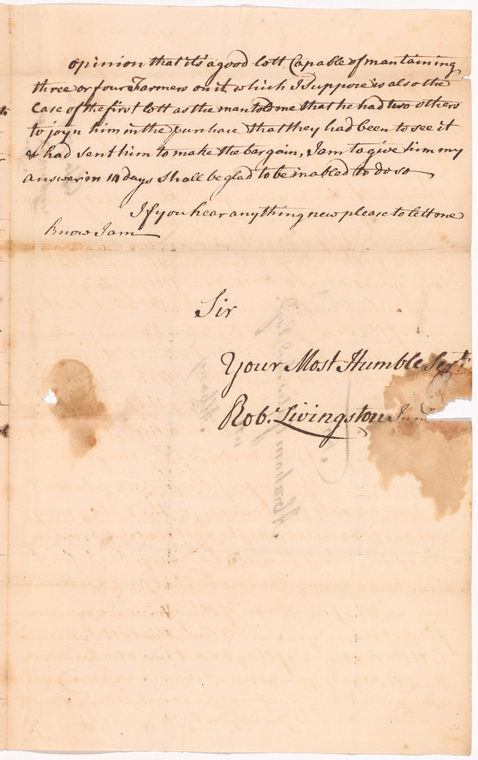 opinion that it's a good lott Capable of mantaining
three or four Farmers on it, which I Suppose is also the
Case of the first lott as the man told me that he had two others
to joyn him in the purchace that they had been to see it
& had sent him to make the bargain, I am to give him my
answer in 14 days Shall be glad to be inabled to do so
If you hear any thing new please to lett me
know I am
Sir
Your Most Humble Serv.t
Rob.t Livingston Jun.r